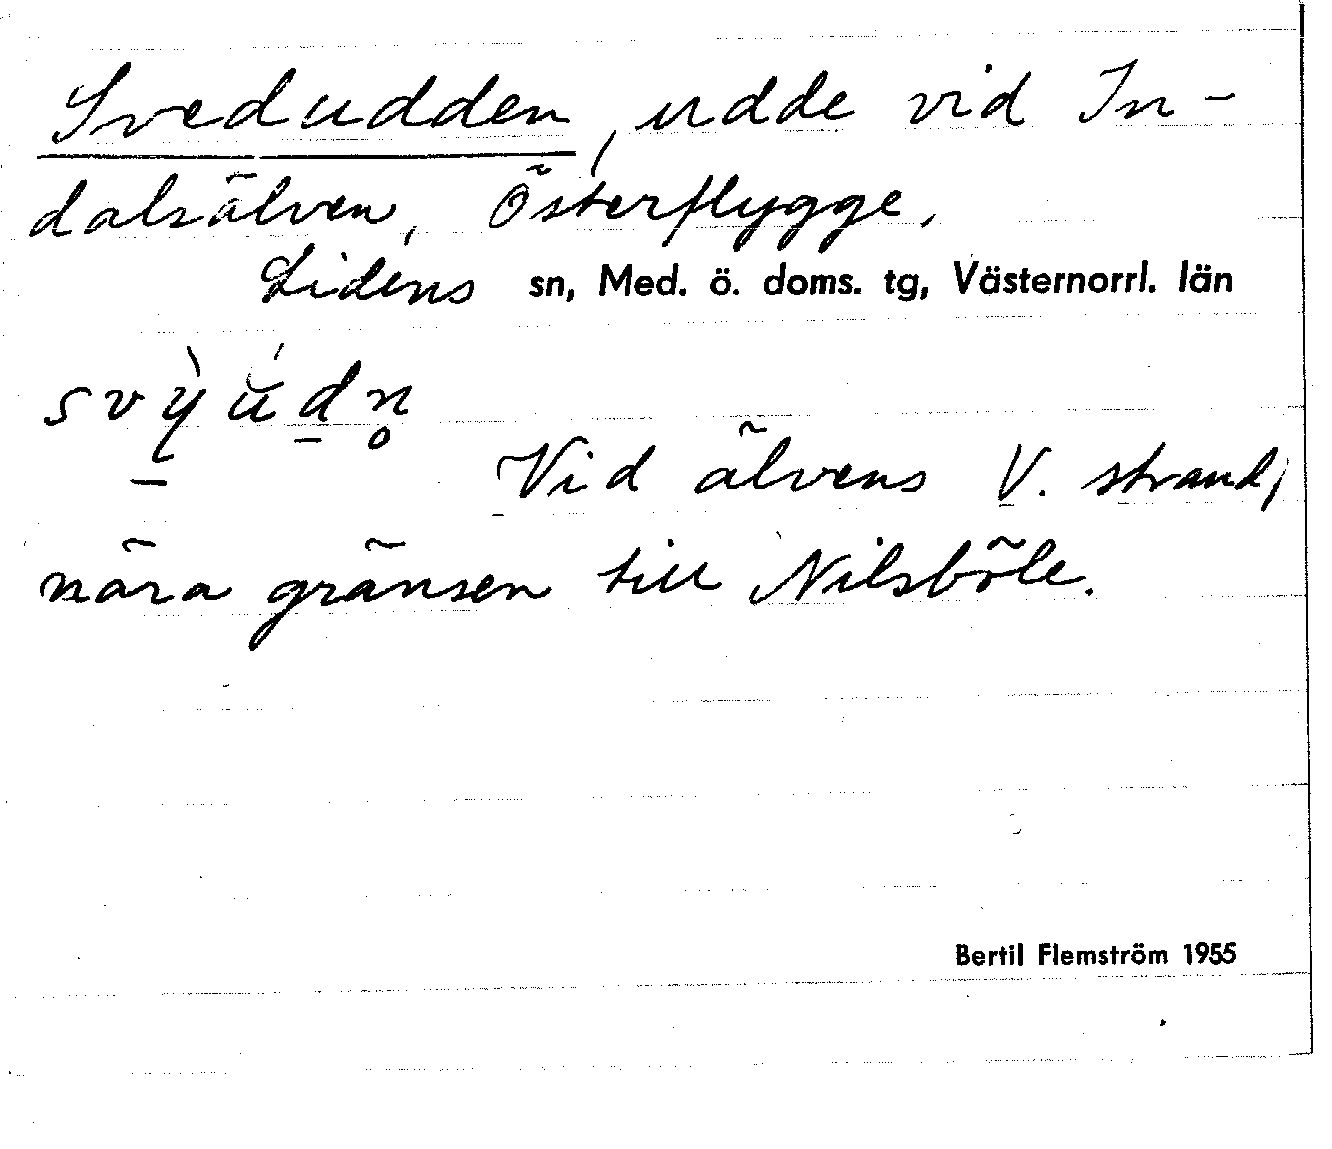 Svedudden, udde vid In-
dalsälven, Österflygge,
Lidens sn, Med. ö. doms. tg, Västernorrl. län
svỳ̲ŭ́d̲n̥
Vid älvens V. strand,
nära gränsen till Nilsböle.
Bertil Flemström 1955